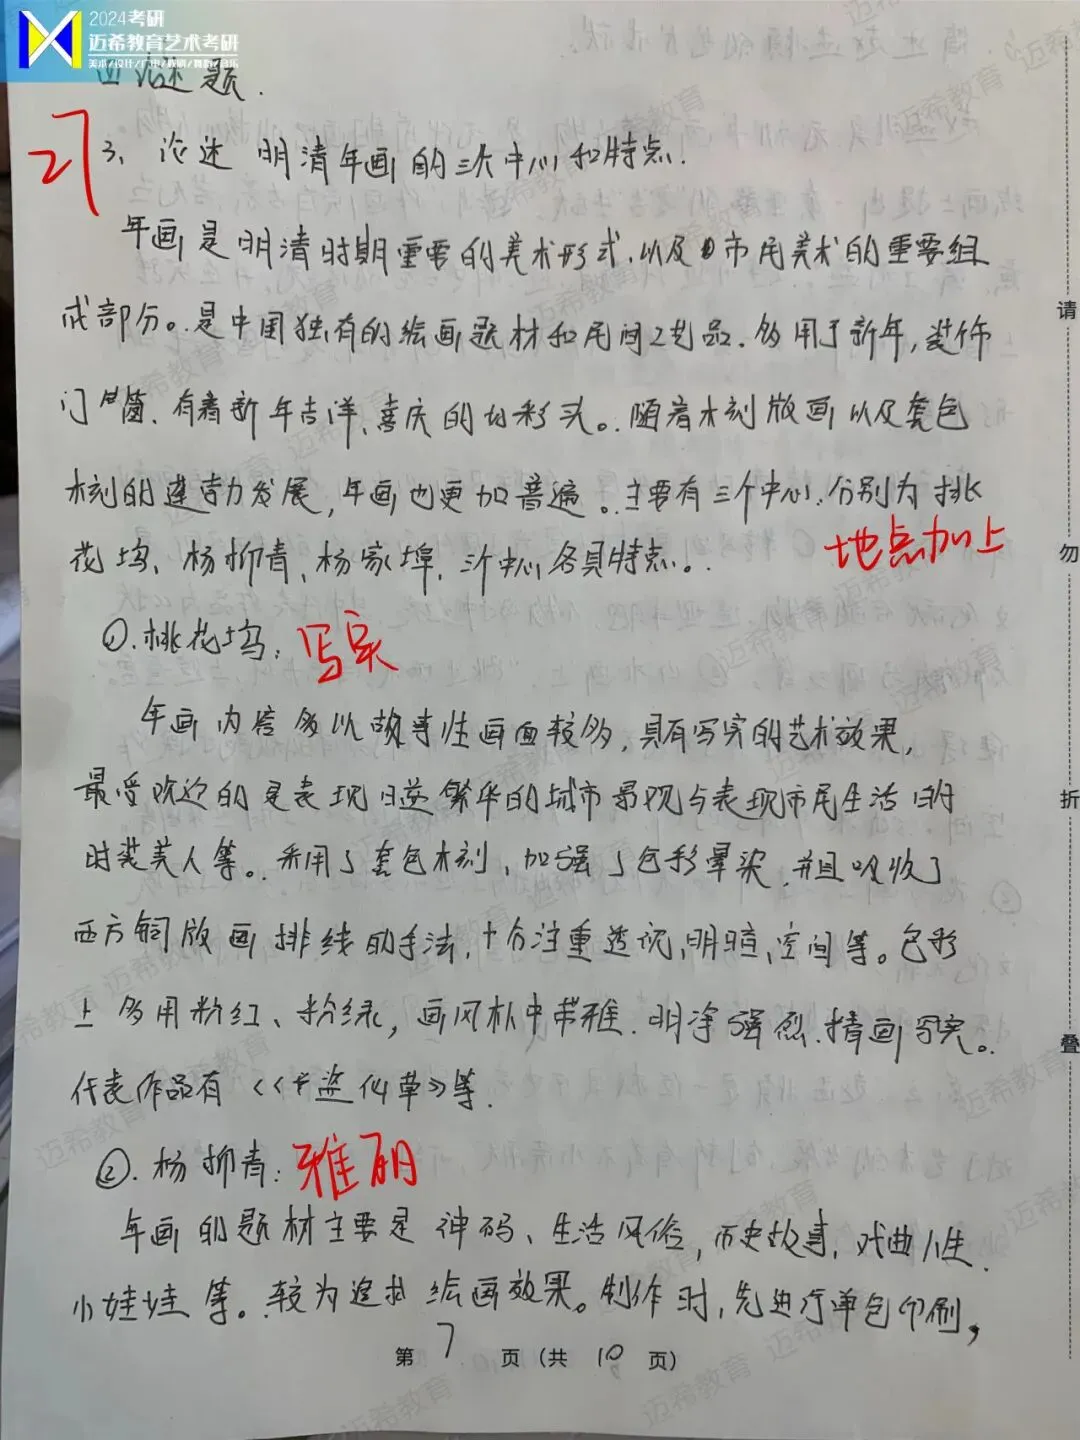 2024考研
迈希教育艺术考研
四论述题.
21
3、论述 明清年画的三大中心和特点.
年画是明清时期重要的美术形式,以及市民美术的重要组
成部分。是中国独有的绘画题材和民间工艺品.多用于新年,装饰
门窗、有着新年吉祥、喜庆的好彩头。随着木刻版画以及套色
木刻的建力发展,年画也更加普遍。主要有三个中心,分别为桃
花坞、杨柳青、杨家埠,三个中心各具特点。
地点加上
①.桃花坞:
写实
年画内容多以故事性画面较多,具有写实的艺术效果,
最受欢迎的是表现日益繁华的城市景观与表现市民生活的
时装美人等。采用了套色木刻,加强了色彩晕染,并且吸收了
西方铜版画排线的手法,十分注重透视、明暗、空间等。色彩
上多用粉红、粉绿,画风朴中带雅.明净强烈.精画写实。
代表作品有《盗仙草》等.
②.杨柳青:
雅丽
年画的题材主要是神码、生活风俗,历史故事,戏曲人生.
小娃娃等。较为追求绘画效果。制作时,先进行单色印刷,
第 7 页(共 10 页)
请
勿
折
叠